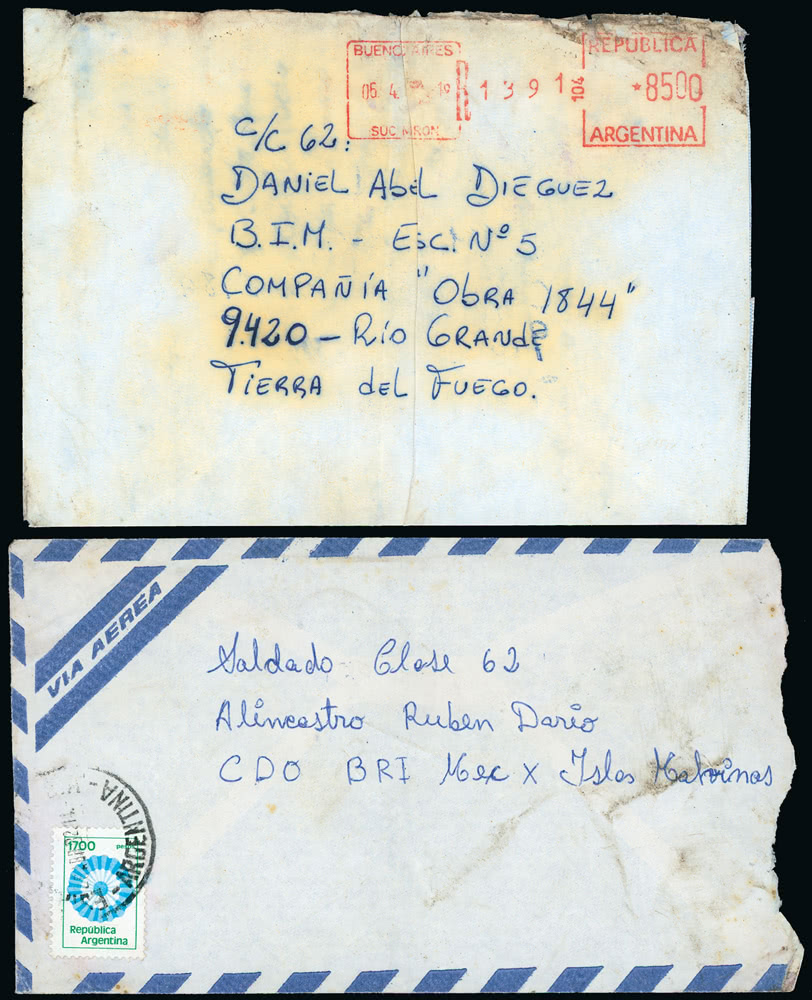 BUENOS AIRES
06. 4. 19
SUC
R 1391
104
REPUBLICA
*8500
ARGENTINA
C/C 62:
DANIEL Abel DIEGUEZ
B.I.M. - Esc. Nº 5
COMPAÑÍA "Obra 1844"
9.420 - Río GRANdE
TIERRA del FUEGO.
VIA AEREA
Soldado Clase 62
Alincastro Ruben Dario
CDO BRI Mec X Islas Malvinas
ARGENTINA
1700 pesos
República
Argentina